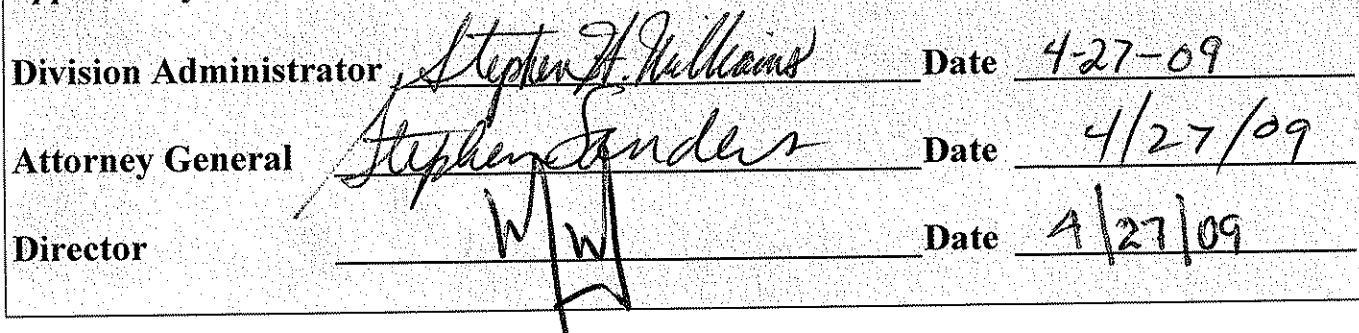 Division Administrator Stephen H. Williams Date 4-27-09
Attorney General Stephen Sanders Date 4/27/09
Director Date 4/27/09